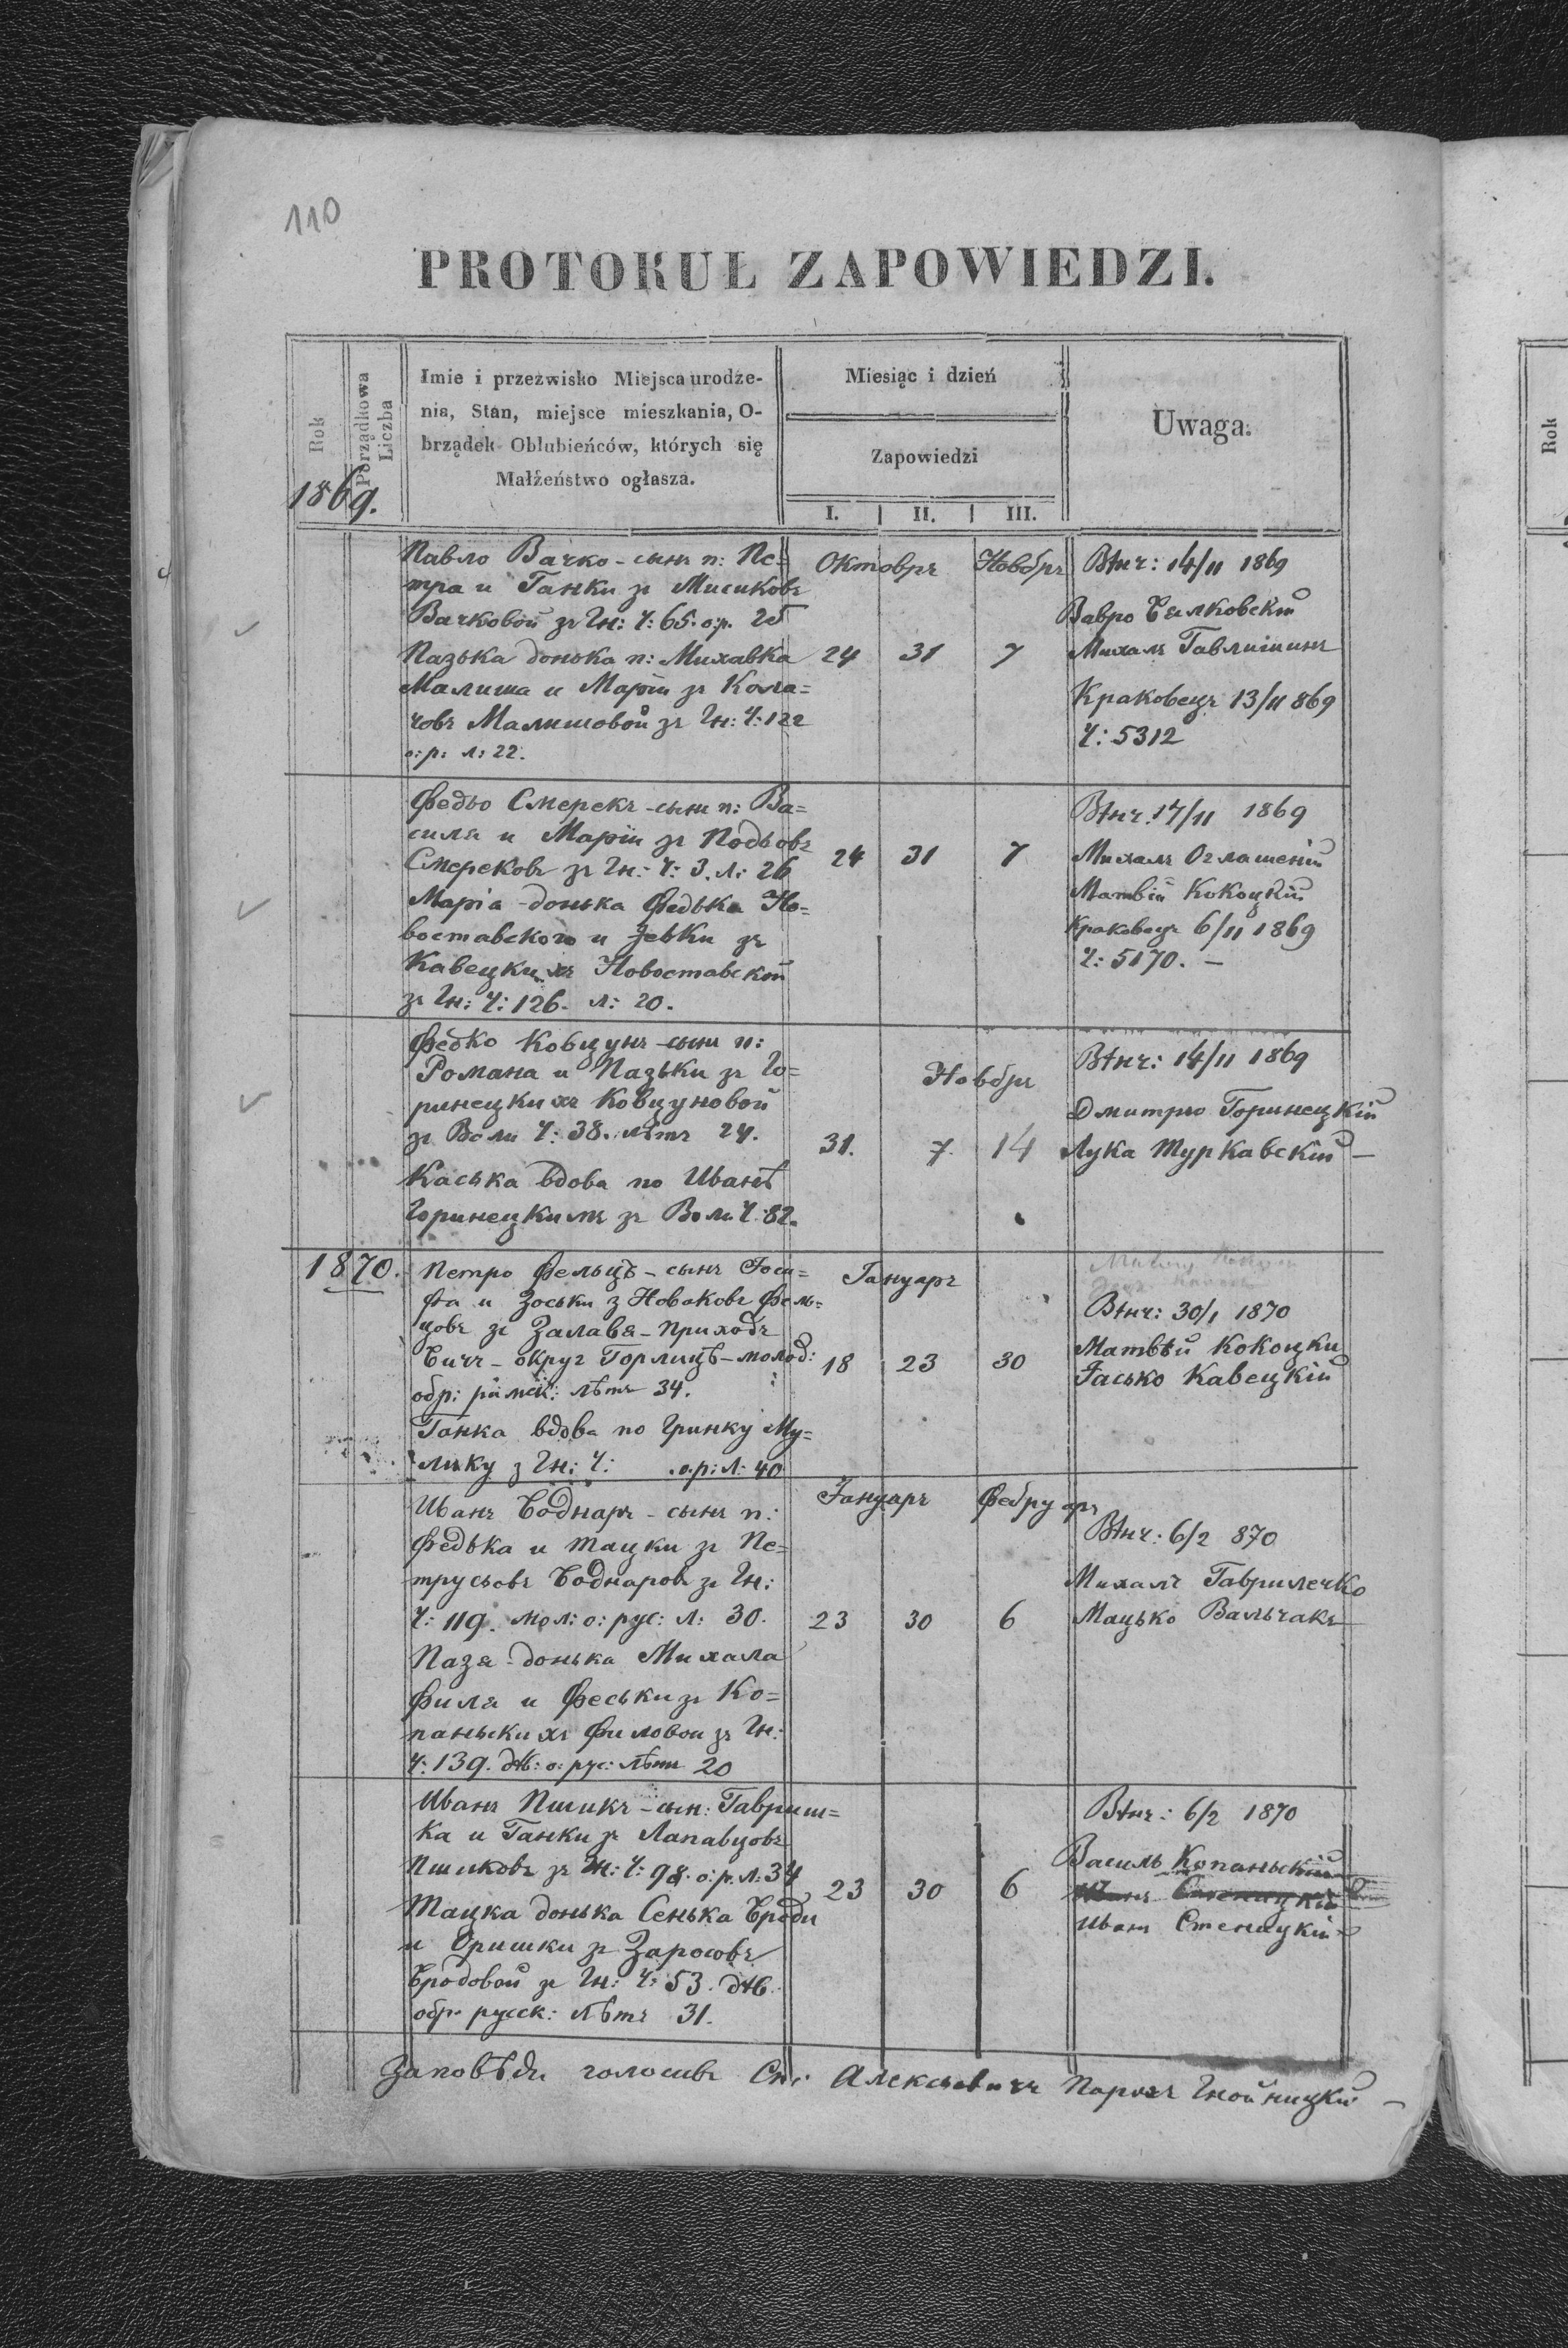 110
PROTOKUŁ ZAPOWIEDZI.
Rok
Porządkowa Liczba
Imie i przezwisko Miejsca urodze-
nia, Stan, miejsce mieszkania, O-
brządek Oblubieńców, których się
Małżeństwo ogłasza.
Miesiąc i dzień
Zapowiedzi
I. II. III.
Uwaga.
1869.
Павло Вачко - сынъ п: Пе=
тра и Ганки зъ Мисиковъ
Вачковой зъ Гн: Ч: 65. о.р. 25
Пазька донька п: Михавка
Малиша и Маріи зъ Кола=
човъ Малишовой зъ Гн: Ч: 122
о: р: л: 22.
Октобръ Новбръ
24 31 7
Вѣнч: 14/11 1869
Вавро Билковскій
Михалъ Гавлишинъ
Краковецъ 13/11 869
Ч: 5312
Федьо Смерекъ - сынъ п: Ва=
силя и Маріи зъ Подьовъ
Смерековъ зъ Гн: Ч: 3. л: 26
Маріа - донька Федька Но=
воставского и Евки зъ
Кавецкихъ Новоставскій
зъ Гн: Ч: 126. л: 20.
24 31 7
Вѣнч. 17/11 1869
Михалъ Оглашеній
Матвій Кокоцкій
Краковецъ 6/11 1869
Ч: 5170. -
Федко Ковцунъ - сынъ п:
Романа и Пазьки зъ Го=
ринецкихъ Ковцуновой
зъ Воли Ч: 38. лѣтъ 24.
Каська вдова по Иванѣ
Горинецкимъ зъ Воли Ч. 82.
Новбръ
31. 7. 14
Вѣнч: 14/11 1869
Дмитро Горинецкій
Лука Туркавскій -
1870.
Петро Фельцъ - сынъ Іоси=
фа и Зоськи з Новаковъ Фель=
цовъ зъ Залавя - приходъ
Бичъ - округ Горлицѣ - молод:
обр: римск: лѣтъ 34.
Ганка вдова по Гринку Му=
лику з Гн: Ч: .о.р: л: 40
Іануаръ
18 23 30
Вѣнч: 30/1 1870
Матвѣй Кокоцки
Іасько Кавецкій
Иванъ Боднаръ - сынъ п:
Федька и Тацки зъ Пе=
трусьовъ Боднаровъ зъ Гн:
Ч: 119. мол: о: рус: л: 30.
Пазя - донька Михала
Филя и Феськи зъ Ко=
паньскихъ Филовой зъ Гн:
Ч: 139. дѣв: о: рус: лѣтъ 20
Іануаръ Фебруаръ
23 30 6
Вѣнч: 6/2 870
Михалъ Гаврилечко
Мацько Вальчакъ
Иванъ Пшикъ - сын: Гавриш=
ка и Ганки зъ Лапавцовъ
Пшиковъ зъ Гн: Ч: 98. о: р. л: 34
Тацка донька Сенька Броди
и Оришки зъ Заросовъ
Бродовой зъ Гн: Ч: 53. дѣв.
обр. русск: лѣтъ 31.
23 30 6
Вѣнч: 6/2 1870
Василь Копаньскій
Иванъ Стеницкій
Иванъ Стеницкій
Заповѣди голосивъ Алексѣевичъ Парохъ Гнойницкій -
Rok